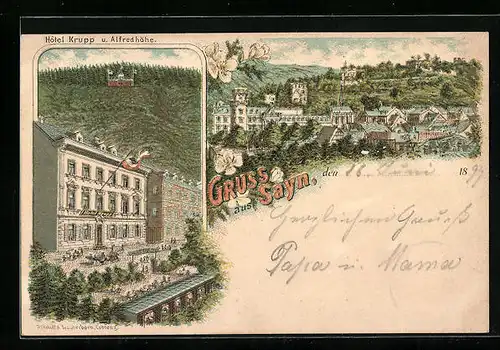 Hôtel Krupp u. Alfredhöhe.
GRUSS
aus Sayn.
den 16. Juni 1897
Herzlichen Gruß
Papa u. Mama